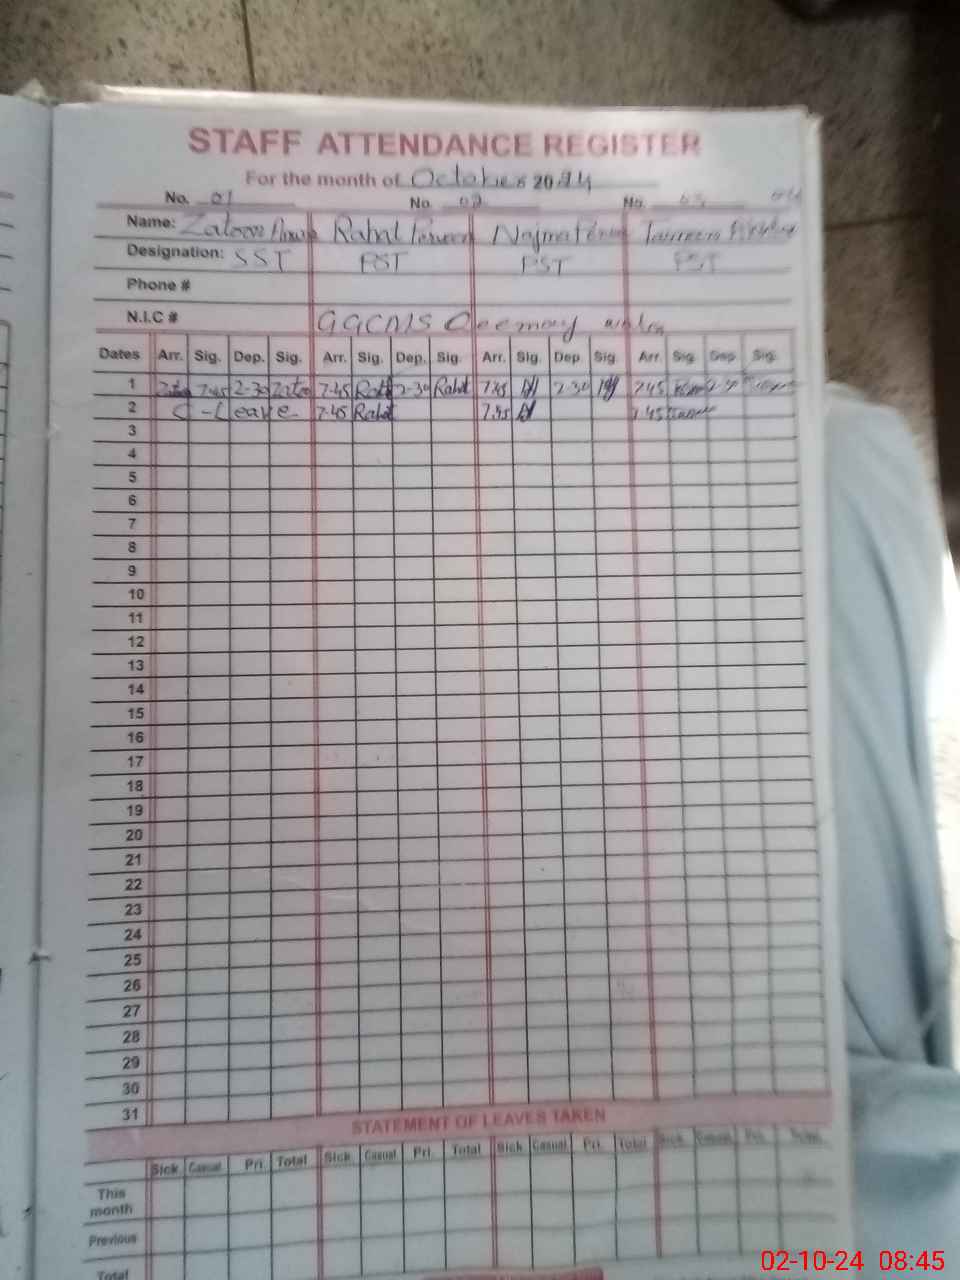 STAFF ATTENDANCE REGISTER
For the month of October 2024
No. 01 No. 02 No. 03 04
Name: Zatoon Rahat Parveen Najma Tasreen
Designation: SST PST PST PST
Phone #
N.I.C # GGCMS
Dates Arr. Sig. Dep. Sig. Arr. Sig. Dep. Sig. Arr. Sig. Dep Sig. Arr. Sig Dep Sig.
1 7-45 2-30 7-45 Rahat 2-30 Rahat 7.45 2-30 7.45 2-30
2 C-Leave 7-45 Rahat 7.45 7.45
3
4
5
6
7
8
9
10
11
12
13
14
15
16
17
18
19
20
21
22
23
24
25
26
27
28
29
30
31
STATEMENT OF LEAVES TAKEN
Sick Casual Pri. Total Sick Casual Pri. Total Sick Casual Pri. Total Sick Casual Pri. Total
This
month
Previous
Total
02-10-24 08:45